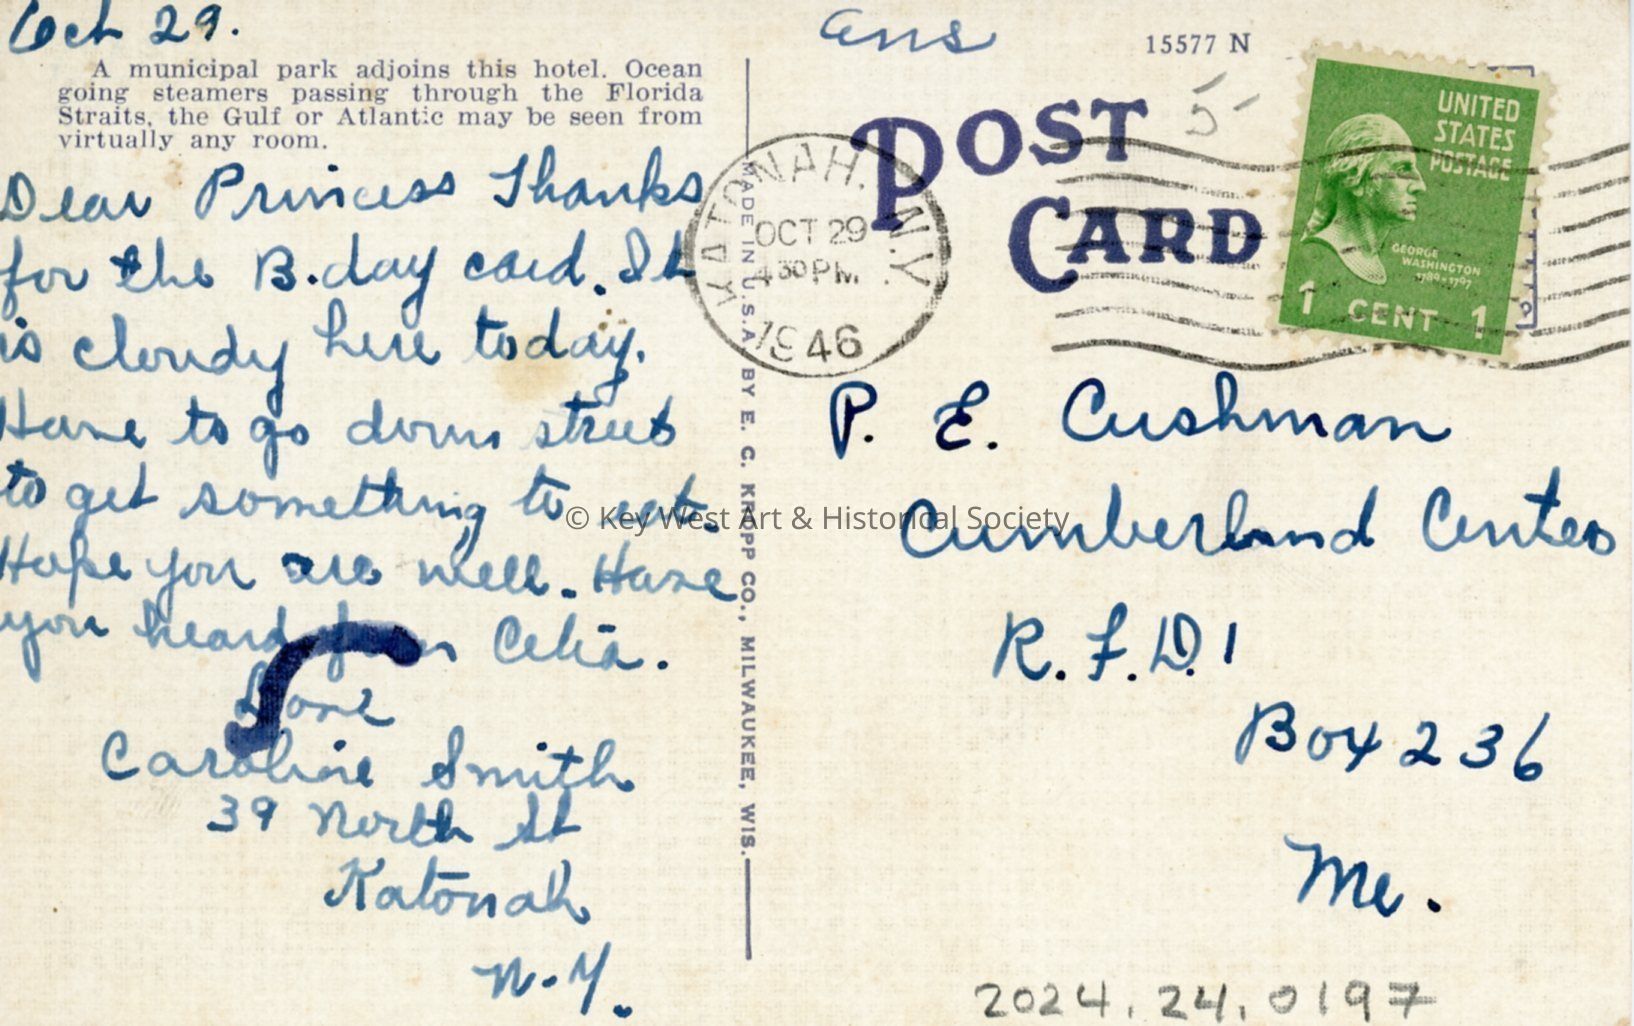 Oct 29.
A municipal park adjoins this hotel. Ocean
going steamers passing through the Florida
Straits, the Gulf or Atlantic may be seen from
virtually any room.
Dear Princess Thanks
for the B.day card. It
is cloudy here today.
Have to go down street
to get something to eat.
Hope you are well. Have
you heard from Celia.
Love
Caroline Smith
39 North St
Katonah
N.Y.
MADE IN U.S.A. BY E. C. KROPP CO., MILWAUKEE, WIS.
ans
15577 N
5
POST
CARD
KATONAH. N.Y.
OCT 29
4 30 PM
1946
UNITED
STATES
POSTAGE
GEORGE
WASHINGTON
1789-1797
1 CENT 1
P. E. Cushman
Cumberland Center
R.F.D. 1
Box 236
Me.
© Key West Art & Historical Society
2024.24.0197